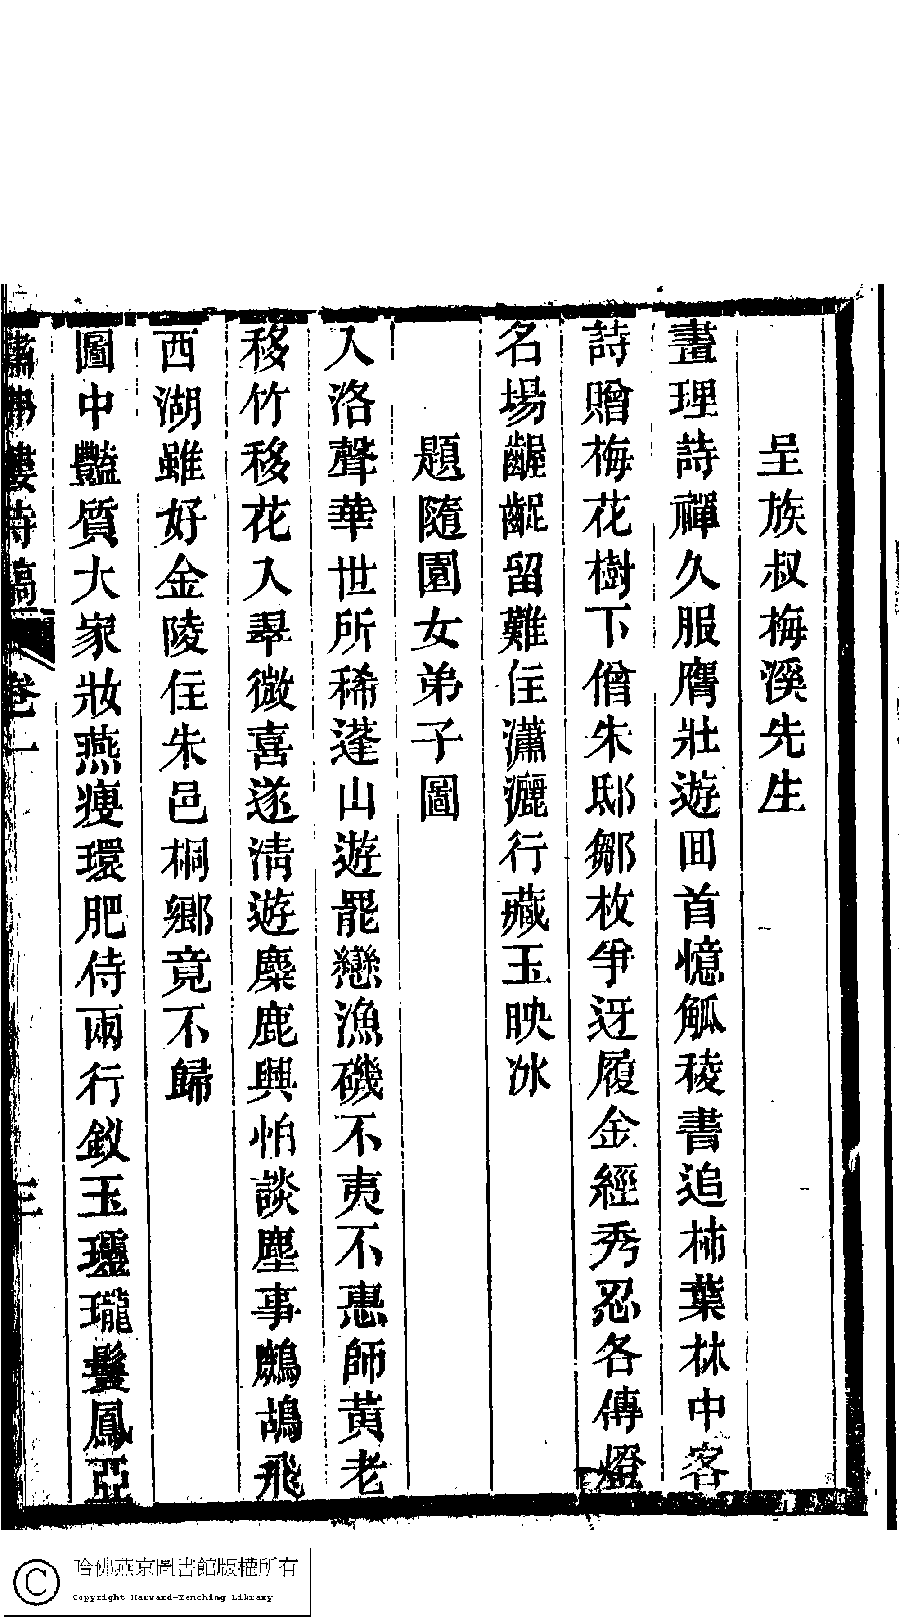 呈族叔梅溪先生
畫理詩禪久服膺壯遊回首憶觚稜書追柿葉林中客
詩贈梅花樹下僧朱邸鄒枚爭迓履金經秀忍各傳燈
名場齷齪留難住瀟灑行藏玉映冰
題隨園女弟子圖
入洛聲華世所稀蓬山遊罷戀漁磯不夷不惠師黃老
移竹移花入翠微喜遂清遊麋鹿興怕談塵事鷓鴣飛
西湖雖好金陵住朱邑桐鄉竟不歸
圖中豔質大家妝燕瘦環肥侍兩行釵玉瓏瓏鬟鳳亞
詩稿 卷一 三
哈佛燕京圖書館版權所有
Copyright Harvard-Yenching Library